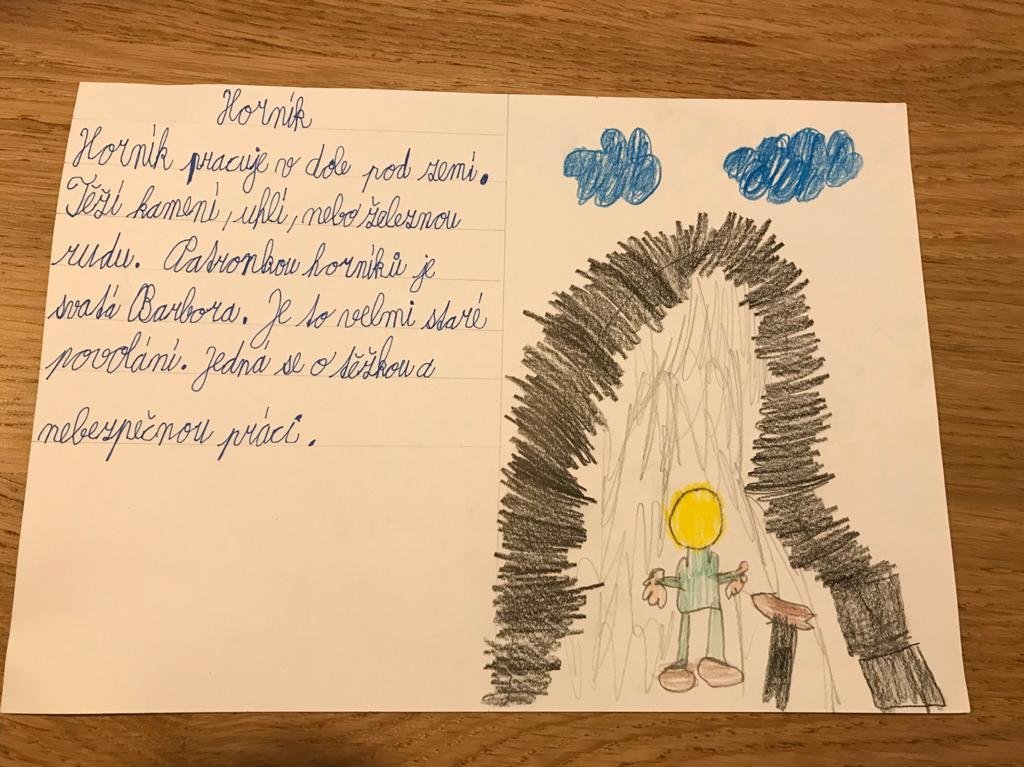 Horník
Horník pracuje v dole pod zemi.
Těží kamení, uhlí, nebo železnou
rudu. Patronkou horníků je
svatá Barbora. Je to velmi staré
povolání. Jedná se o těžkou a
nebezpečnou práci.